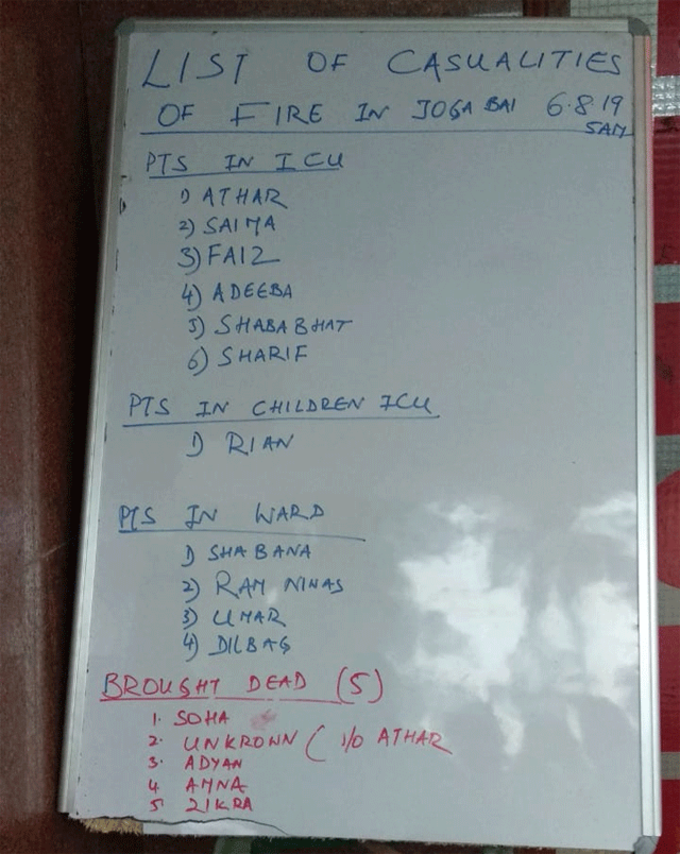 LIST OF CASUALITIES
OF FIRE IN JOGA BAI 6.8.19
5AM
PTS IN ICU
1) ATHAR
2) SAIMA
3) FAIZ
4) ADEEBA
5) SHABA BHAT
6) SHARIF
PTS IN CHILDREN ICU
1) RIAN
PTS IN WARD
1) SHABANA
2) RAM NIWAS
3) UMAR
4) DILBAG
BROUGHT DEAD (5)
1. SOHA
2. UNKROWN ( ATHAR
3. ADYAN
4 AMNA
5. ZIKRA